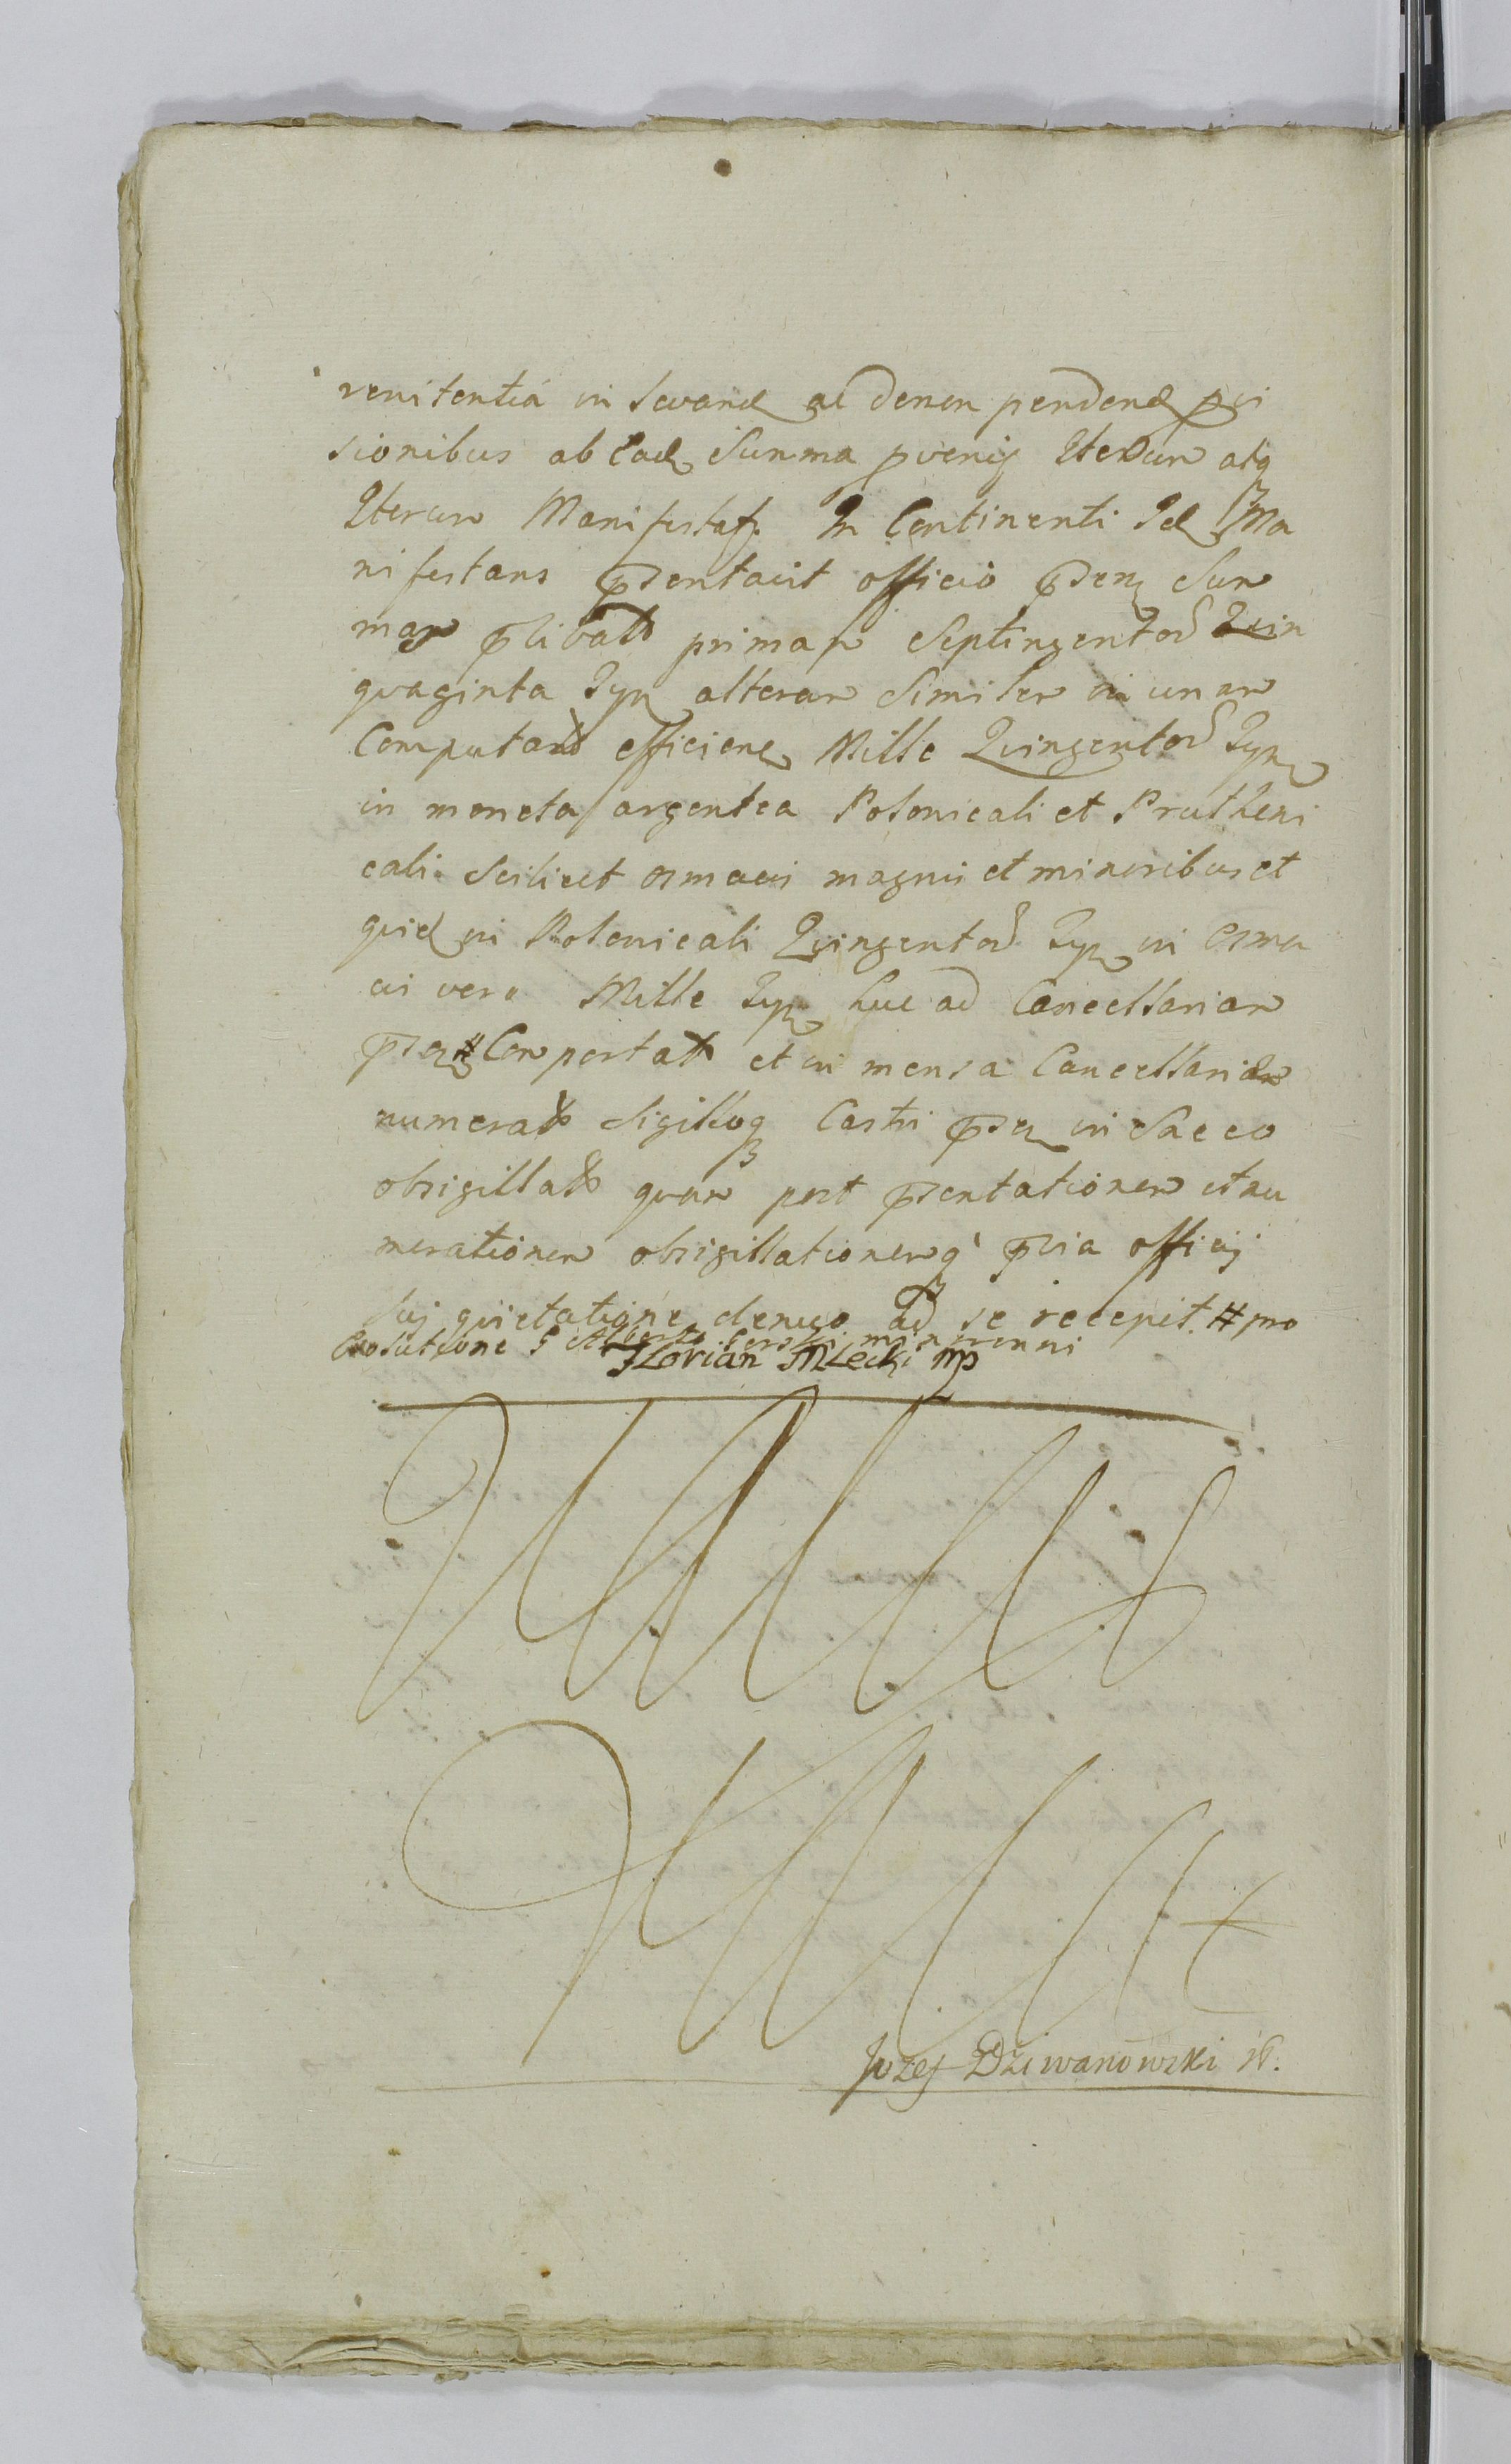 renitentiá in levand ac denon pendend pvi
sionibus ab ead Summa pvenij Iterum atq
Iterum Manifestat. In Continenti Id Ma
nifestans psentavit officio psen Sum
mam plibat primam Septingentor Quin
quaginta Typ alteram Similem in unam
Computand efficien Mille Quingentor Typ
in moneta argentea Polonicali et Prutheni
cali. Scilicet osmaci magni et minoribus et
quid in Polonicali Quingentor Typ in osma
ci vero Mille Typ huc ad Cancellariam
psen # Comportat et in mensa Cancellariae
numerat Sigilloq Castri psen in Sacco
obsigillat quam post psentationem et nu
merationem obsigillationemq pvia officij
sui quietatione denuo ad se recepit. # pro
Absolutione G Alberto minorenni
Florian Mlecki mp
Jozef Dziwanowski